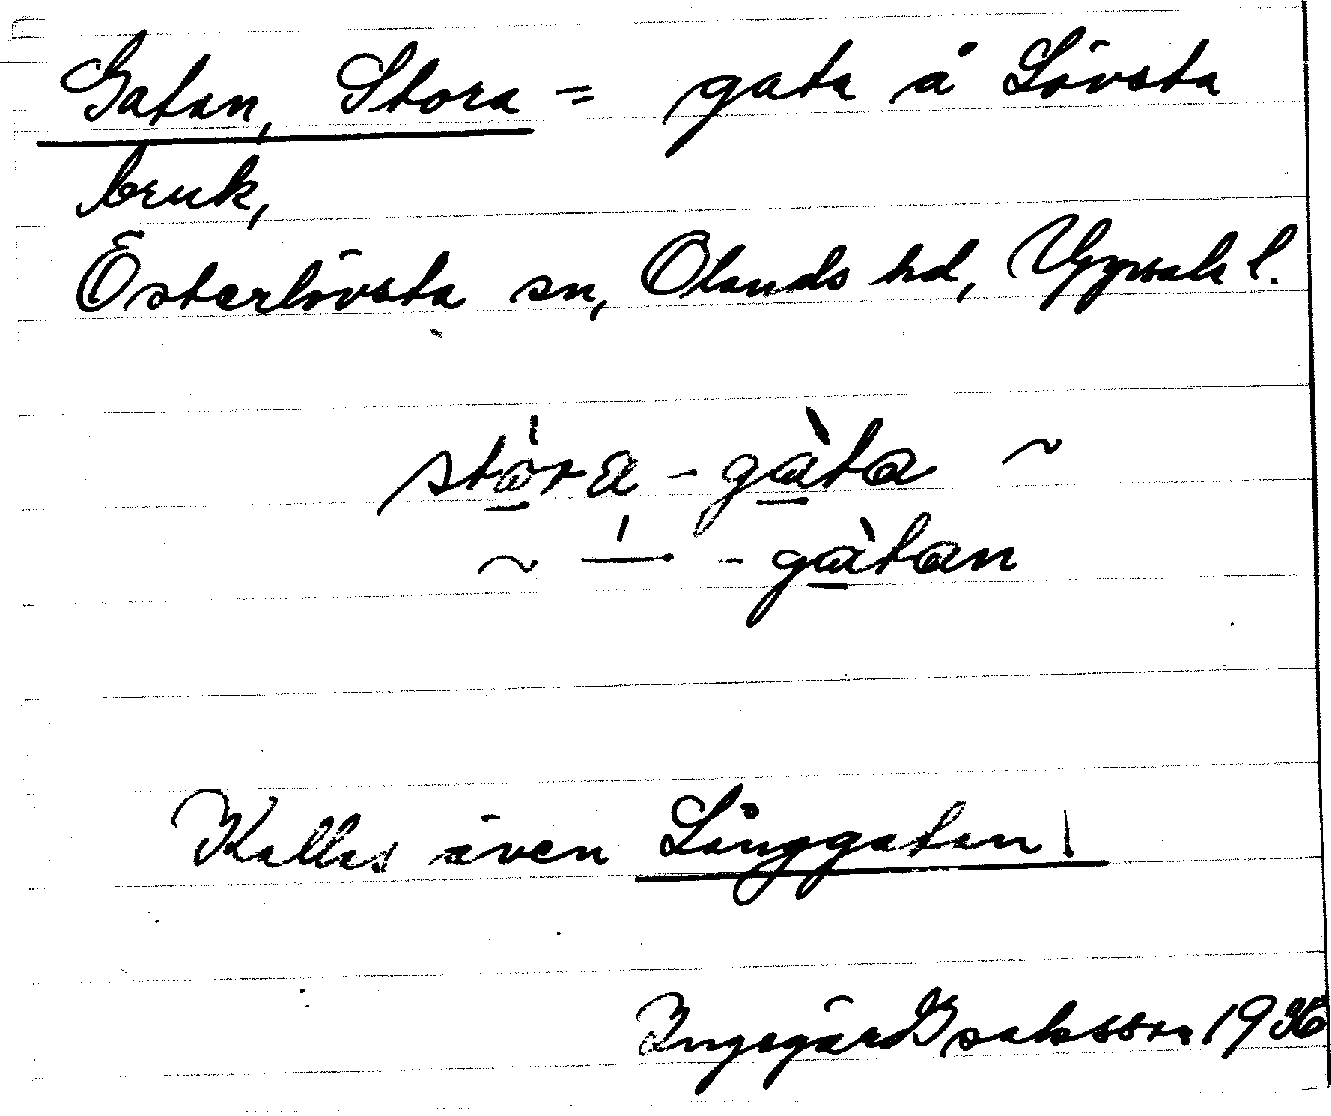 Gatan, Stora = gata å Lövsta
bruk,
Österlövsta sn, Olands hd, Uppsala l.
stòra - gàta ~
~ — - gàtan
Kallas även Långgatan!
Ingegärd Isaksson 1936